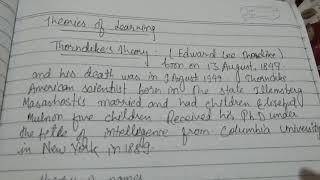 Theories of Learning
Thorndike's Theory :- (Edward Lee Thorndike)
born on 13 August, 1847
and his death was in 9 August 1949. Thorndike
American scientist born in the state Illemsberg
Masashosti's married and had children Elisefal
five children Received his Ph.D under
the of intelligence from Columbia University
in New York in 1889.
names